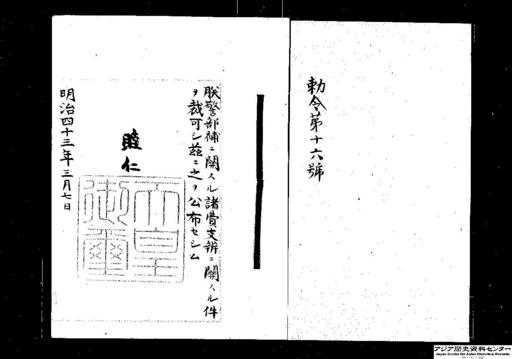 勅令第十六號
朕警部補ニ關スル諸費支辨ニ關スル件
ヲ裁可シ茲ニ之ヲ公布セシム
睦仁
天皇
御璽
明治四十三年三月七日
アジア歴史資料センター
Japan Center for Asian Historical Records